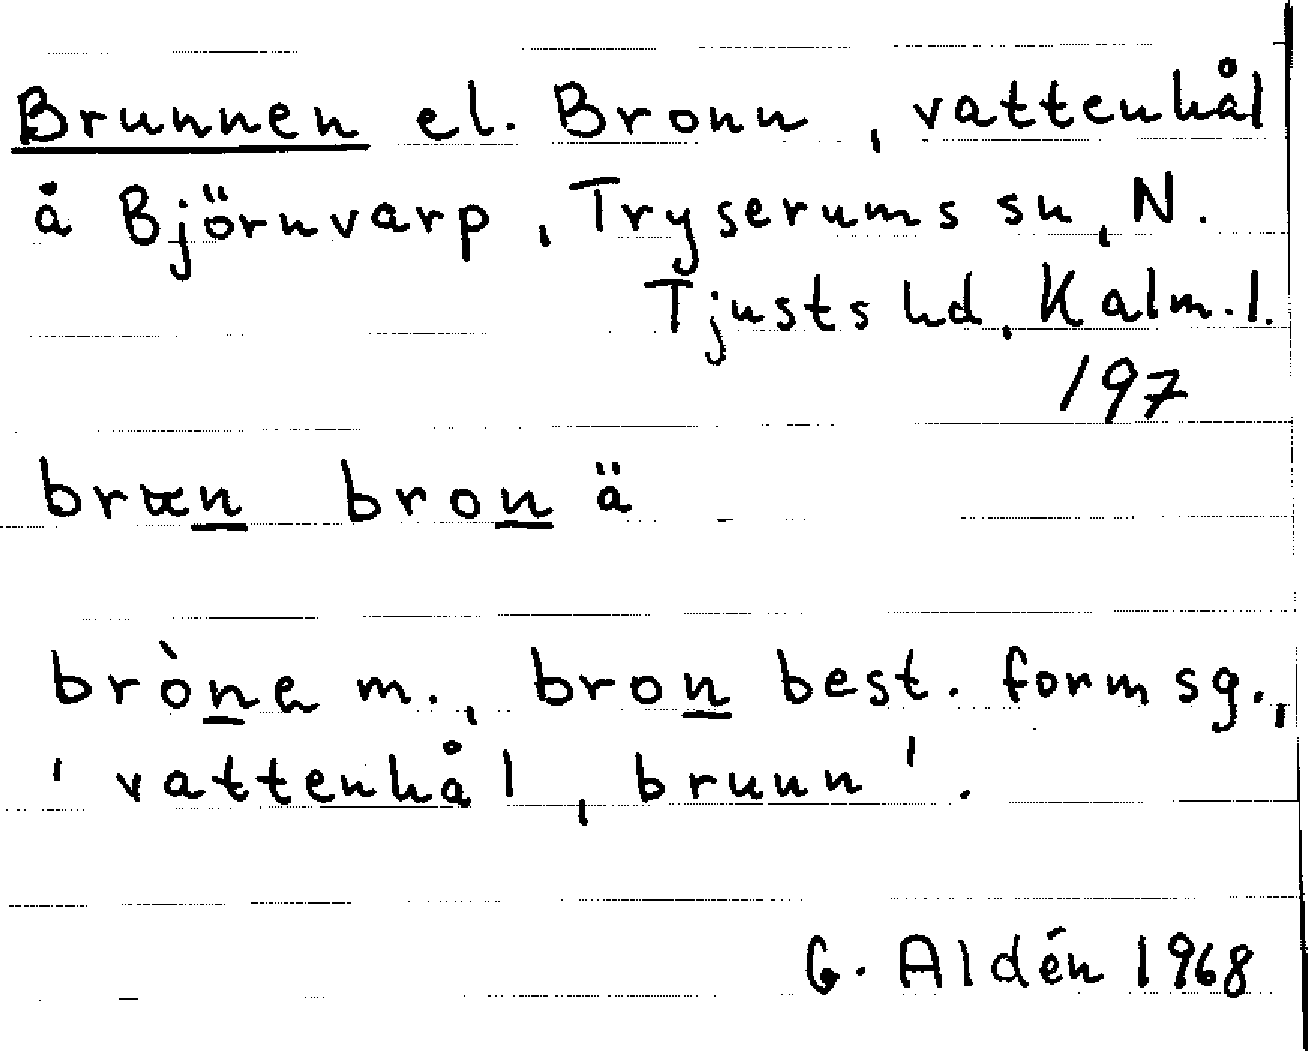 Brunnen el. Bronn, vattenhål
å Björnvarp, Tryserums sn, N.
Tjusts hd, Kalm.l.
197
bron ä
bròna m., bron best. form sg.,
'vattenhål, brunn'.
G. Aldén 1968